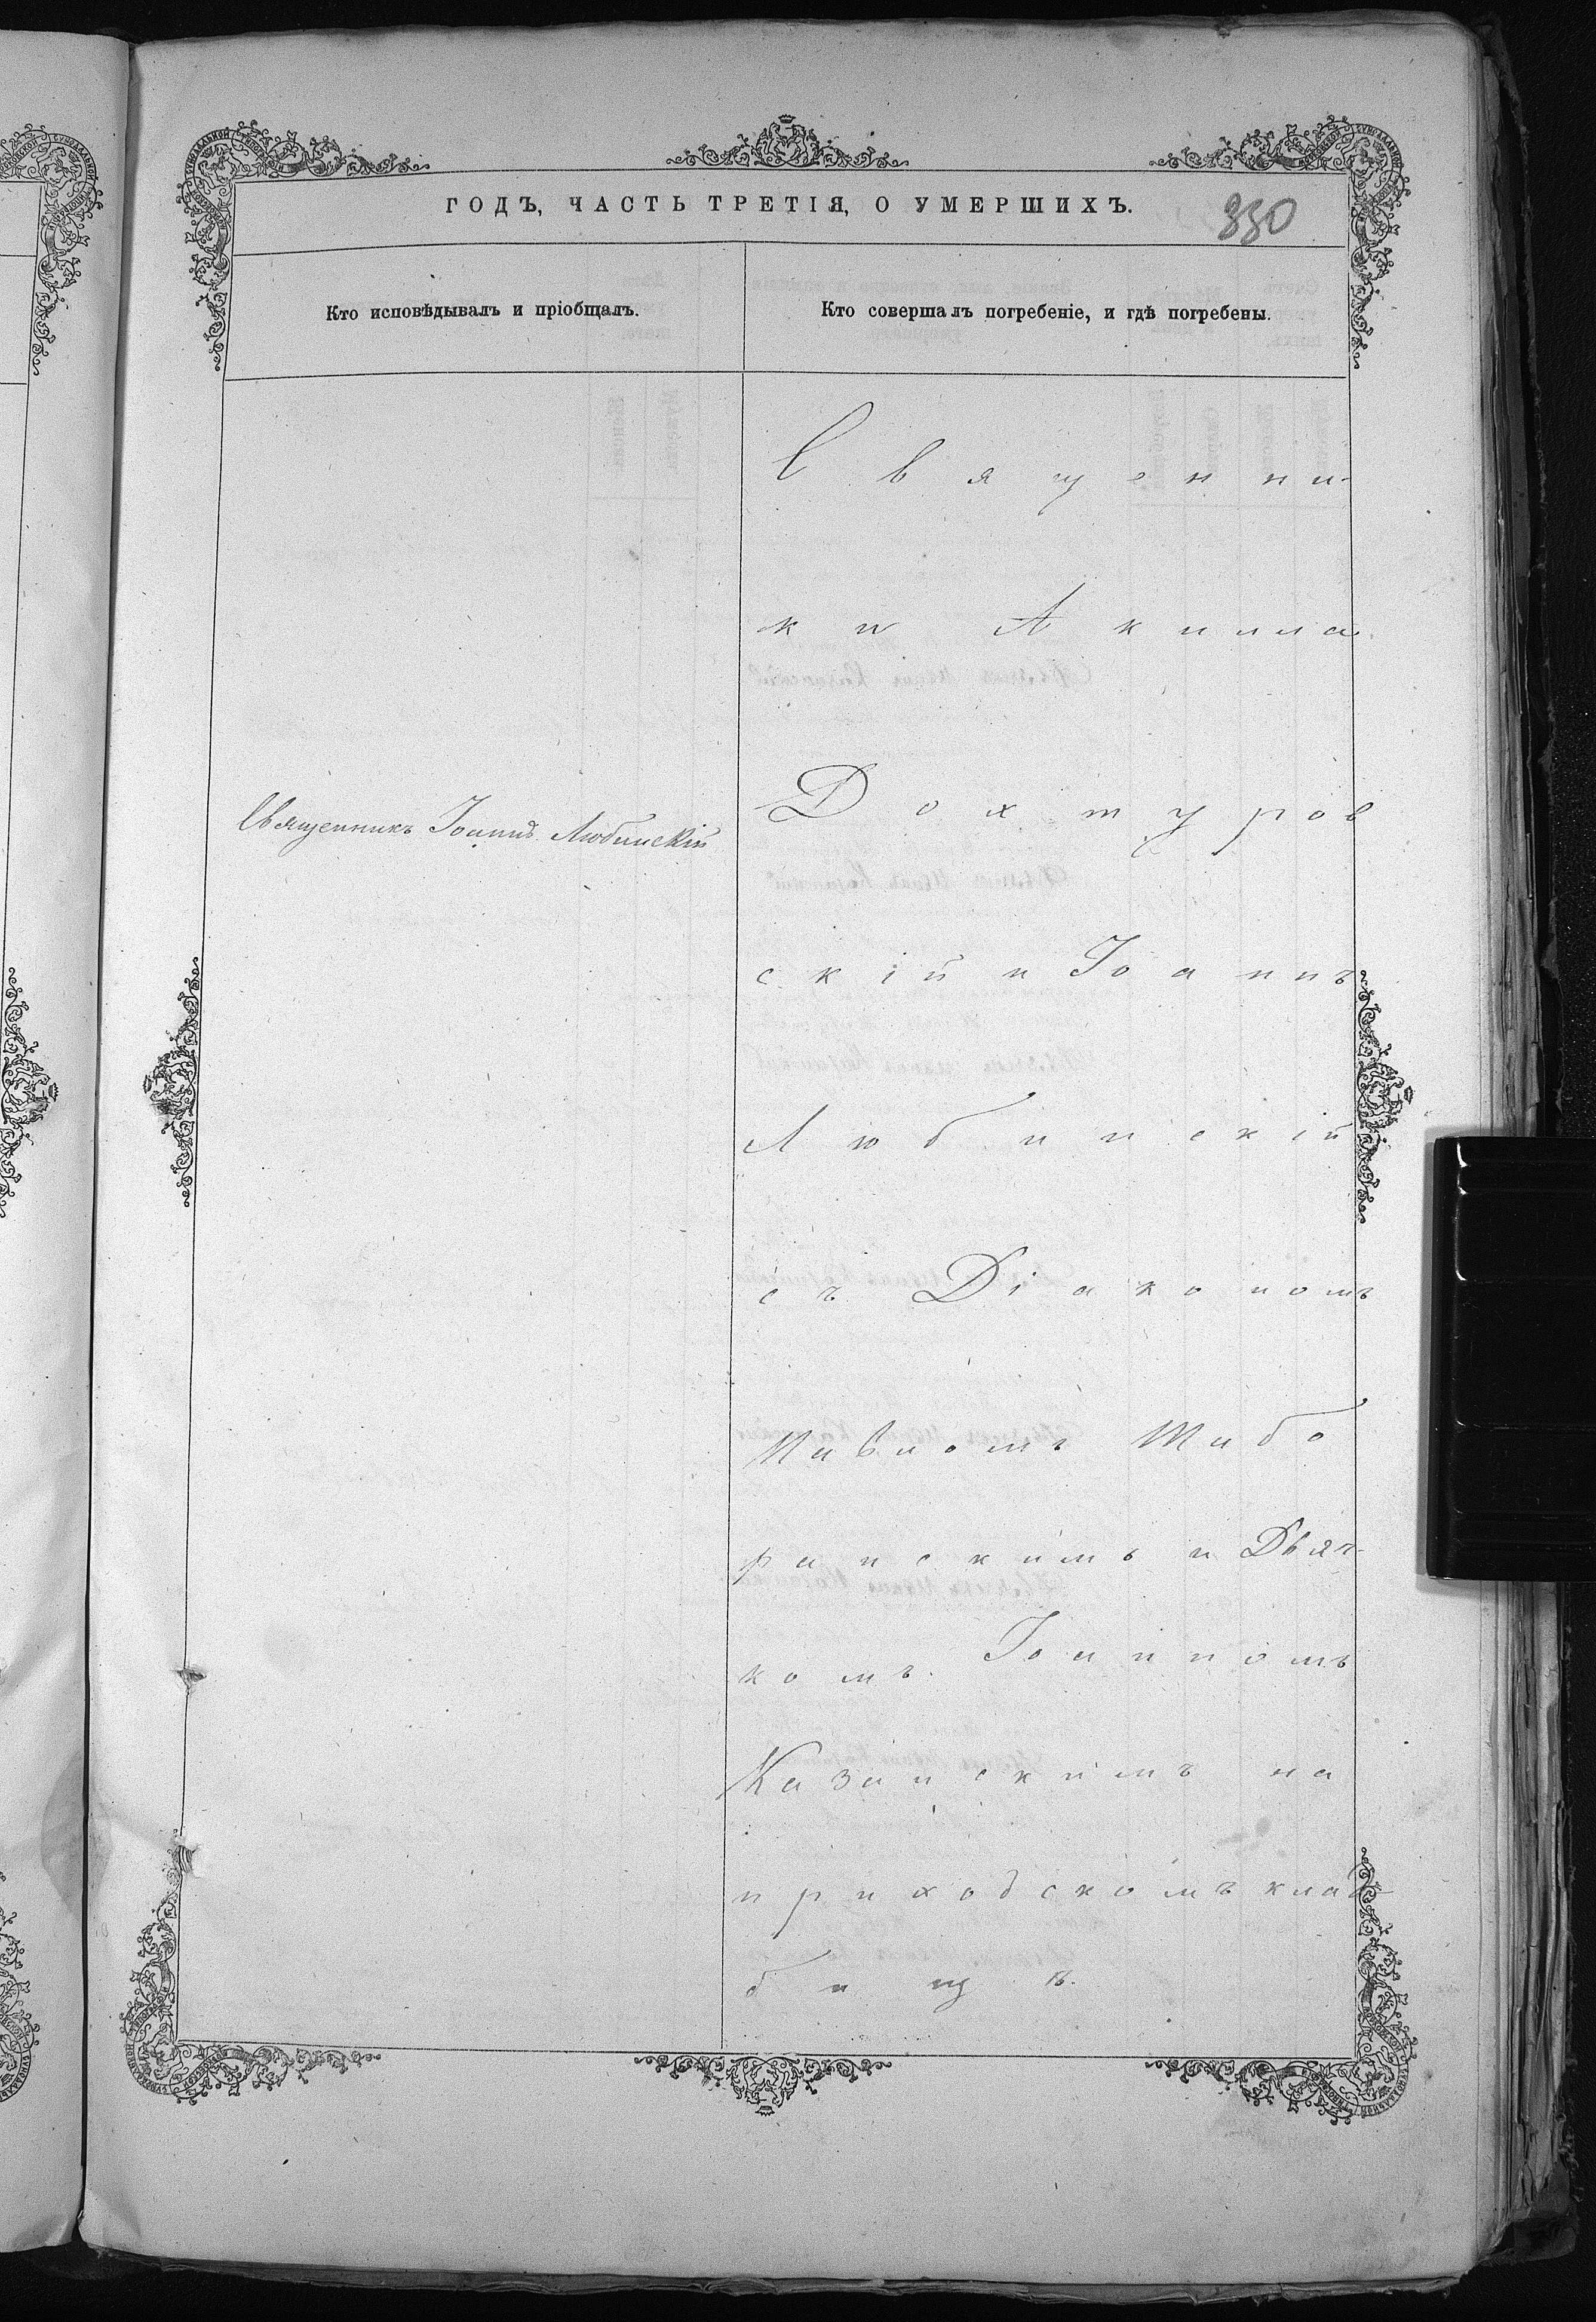 ГОДЪ, ЧАСТЬ ТРЕТІЯ, О УМЕРШИХЪ.
330
Кто исповѣдывалъ и пріобщалъ.
Кто совершалъ погребеніе, и гдѣ погребены.
Священникъ Іоаннъ Любинскій
Священни-
ки Акила
Дохтуров
скій и Іоаннъ
Любинскій
съ Діакономъ
Павломъ Шабо
ринскимъ и Дьяч-
комъ Іоанномъ
Казанскимъ на
приходскомъ клад-
бищѣ.